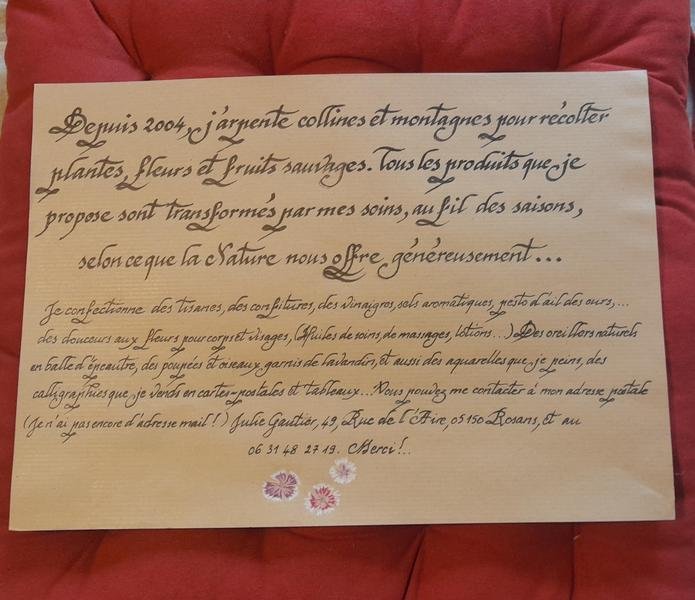 Depuis 2004, j'arpente collines et montagnes pour récolter
plantes, fleurs et fruits sauvages. Tous les produits que je
propose sont transformés par mes soins, au fil des saisons,
selon ce que la Nature nous offre généreusement...
Je confectionne des tisanes, des confitures, des vinaigres, sels aromatiques, pesto d'ail des ours,...
des douceurs aux fleurs pour corps et visages, (Huiles de soins, de massages, lotions...) Des oreillers naturels
en balle d'épeautre, des poupées et oiseaux garnis de lavandin, et aussi des aquarelles que je peins, des
calligraphies que je vends en cartes-postales et tableaux... Vous pouvez me contacter à mon adresse postale
(Je n'ai pas encore d'adresse mail!) Julie Gautier, 49, Rue de l'Aire, 05150 Rosans, et au
06 31 48 27 19. Merci!..